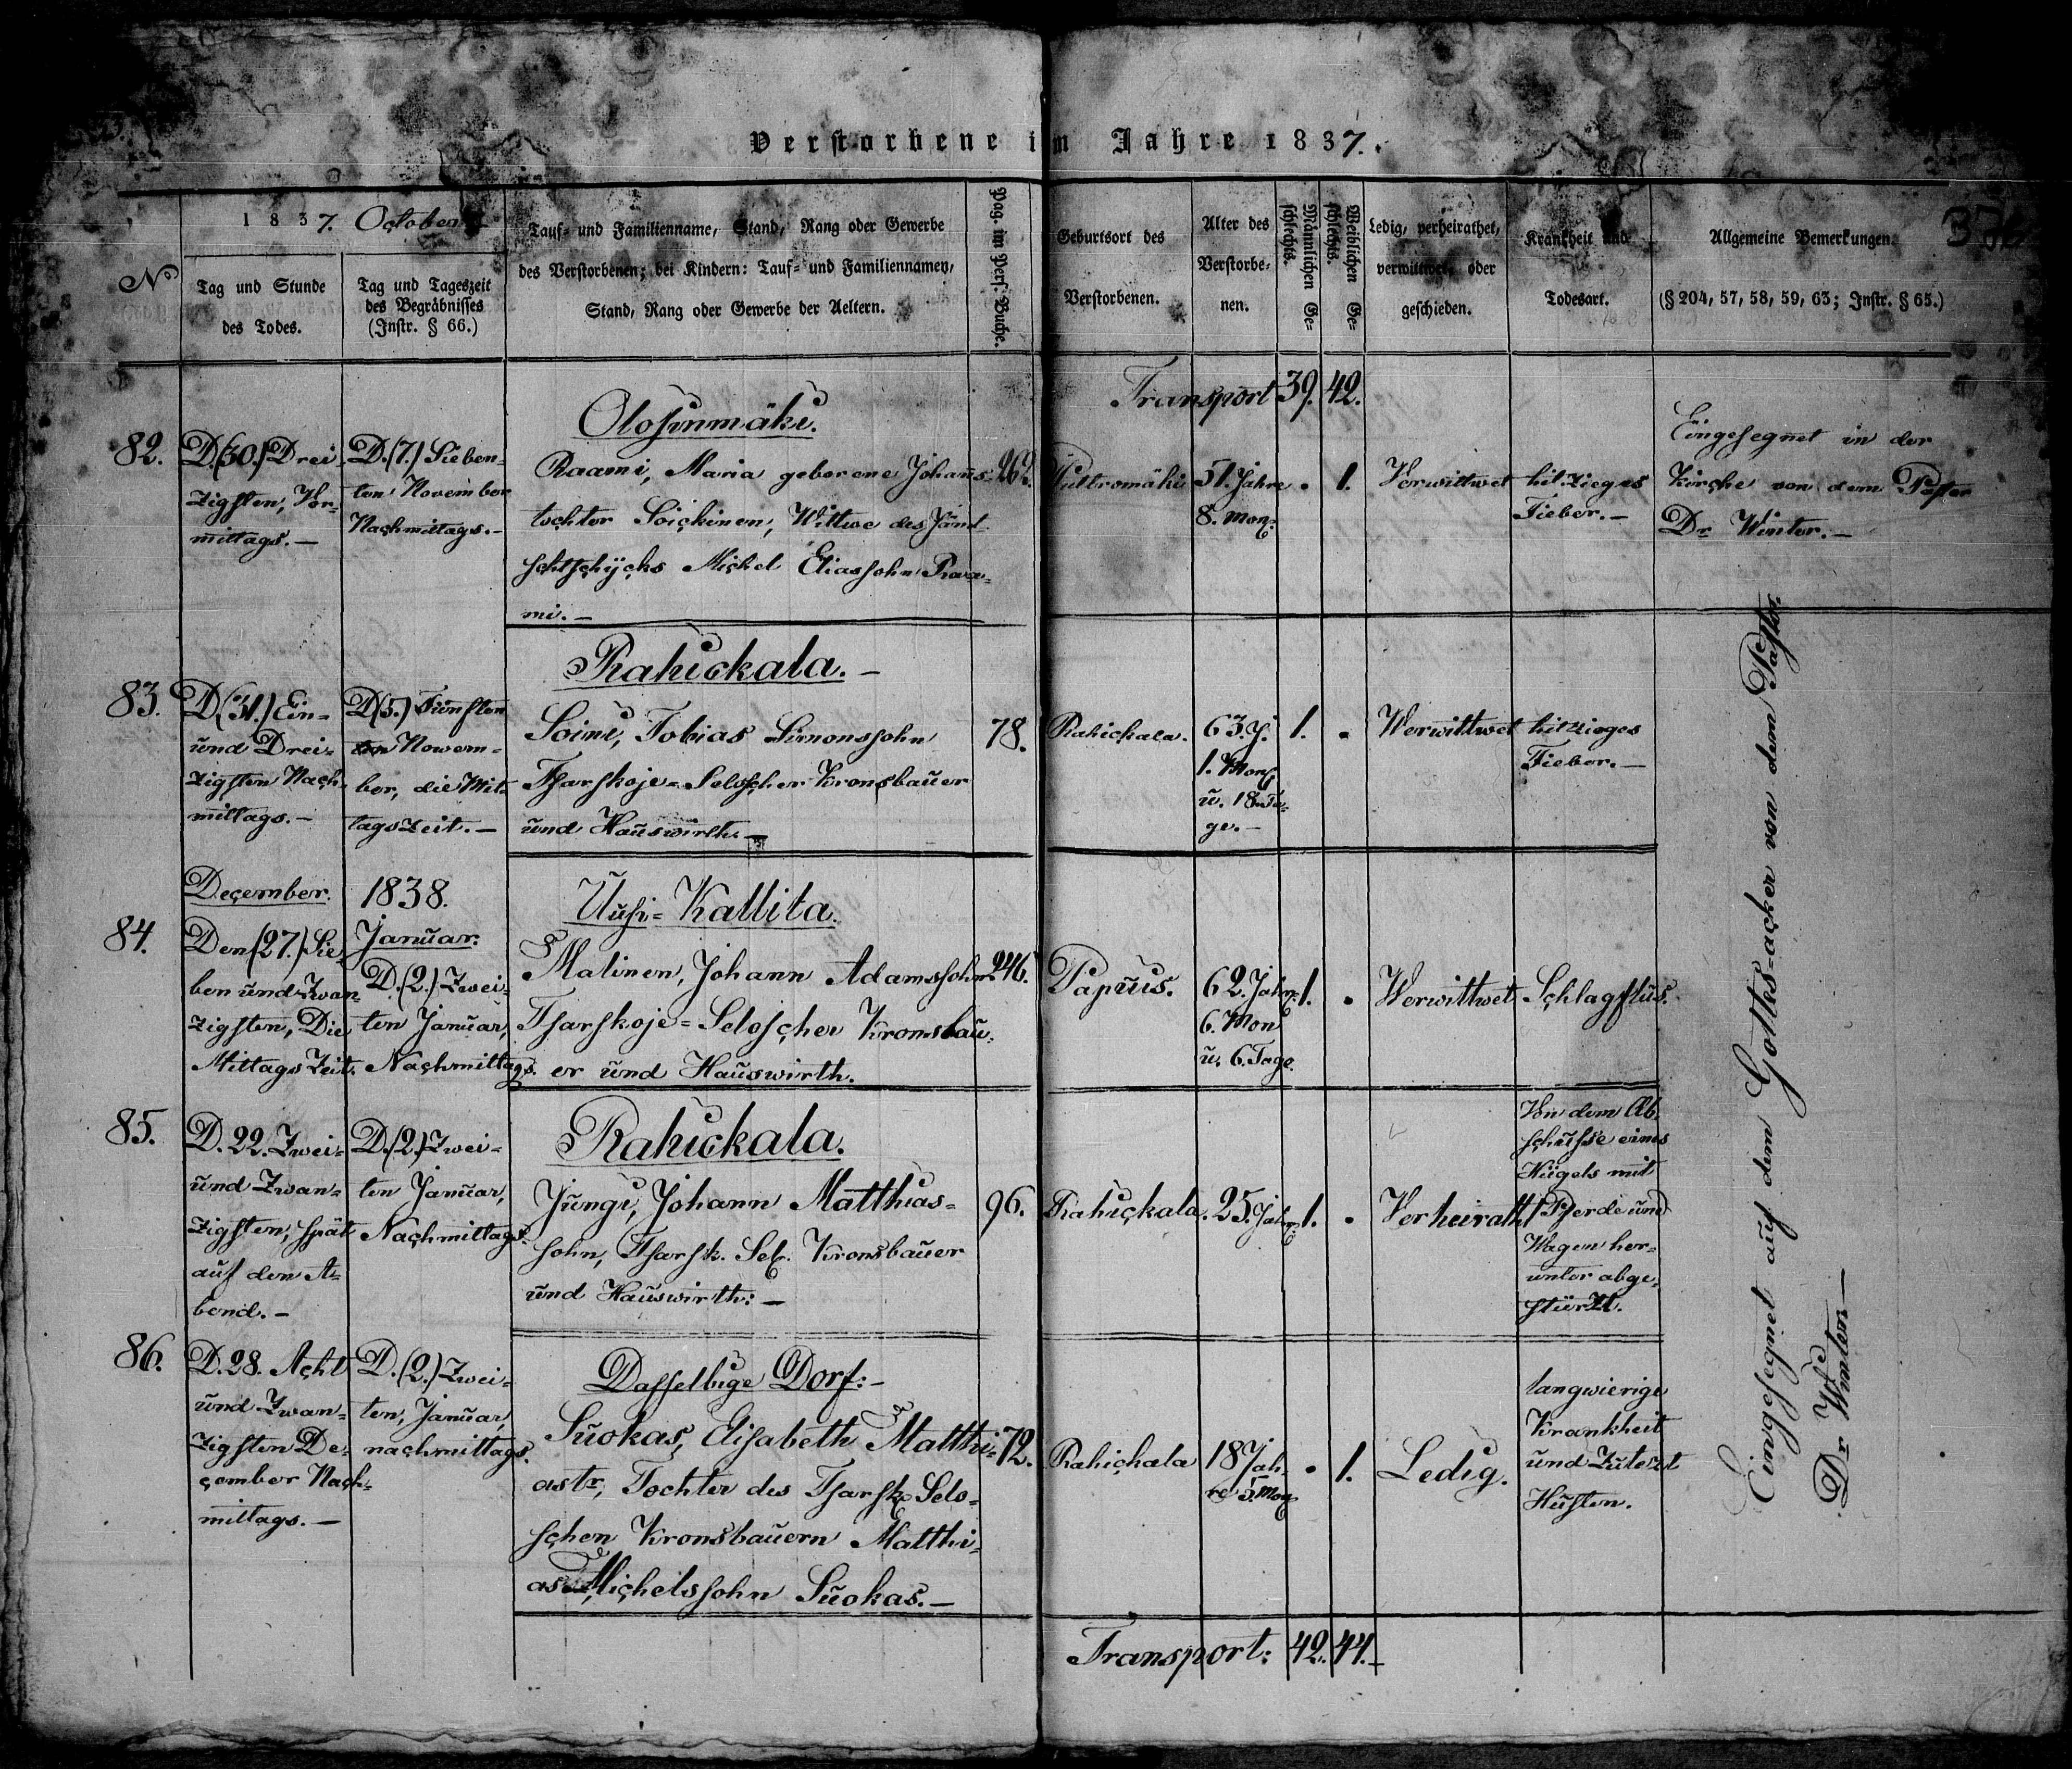 Verstorbene im Jahre 1837.
1837. October
Nº
Tag und Stunde
des Todes.
Tag und Tageszeit
des Begräbnisses
(Instr. § 66.)
Tauf- und Familienname, Stand, Rang oder Gewerbe
des Verstorbenen; bei Kindern: Tauf- und Familiennamen,
Stand, Rang oder Gewerbe der Aeltern.
Pag. im Pers. Buche.
Geburtsort des
Verstorbenen.
Alter des
Verstorbe-
nen.
Männlichen Ge-
schlechts.
Weiblichen Ge-
schlechts.
Ledig, verheirathet,
verwittwet, oder
geschieden.
Krankheit und
Todesart.
Allgemeine Bemerkungen.
(§ 204, 57, 58, 59, 63; Instr. § 65.)
Transport 39. 42.
82.
D.(30.) Drei-
zigsten, Vor-
mittags.—
D.(7.) Sieben-
ten November
Nachmittags.—
Olosinmäki.
Raami, Maria geborene Johans-
tochter Soickinen, Wittwe des Jäm-
schtschycks Michel Eliassohn Raa-
mi.—
262.
51. Jahre
8. Mon.
1.
Verwittwet
hitziges
Fieber.—
Eingesegnet in der
Kirche von dem Pastor
Dr Winter.—
83.
D(31.) Ein-
und Drei-
zigsten Nach-
mittags.—
D(5.) Fünften
Novem-
ber, die Mit-
tagszeit.—
Rahickala.—
Soini, Tobias Simonssohn
Tsarskoje-Seloscher Kronsbauer
und Hauswirth.—
78.
Rahickala.
63. J.
1. Mon
u. 18. Ta-
ge.—
1.
Werwittwet
hitziges
Fieber.—
84.
December.
Den(27.) Sie-
ben und Zwan-
zigsten, Die
Mittags Zeit.
1838.
Januar.
D.(2.) Zwei-
ten Januar,
Nachmittags.
Uusi-Kallita.
Malinen, Johann Adamssohn
Tsarskoje-Seloscher Kronsbau-
er und Hauswirth.
246.
Papuis.
62. Jahr
6. Mon
u. 6. Tage.
1.
Werwittwet
Schlagflus.
85.
D. 22. Zwei-
und Zwan-
zigsten, spät
auf den A-
bend.—
D.(2.) Zwei-
ten Januar,
Nachmittags.
Rahickala.
Jüngi, Johann Matthias-
sohn, Tsarsk. Sel. Kronsbauer
und Hauswirth:—
96.
Rahickala.
25. Jahr
1.
Verheirath
Von dem Ab-
schusse eines
Hügels mit
Pferde und
Wagen her-
unter abge-
stürzt.
86.
D. 28. Acht
und Zwan-
zigsten De-
cember Nach-
mittags.—
D.(2.) Zwei-
ten, Januar,
nachmittags.
Dasselbige Dorf:—
Suokas, Elisabeth Matthi-
astr, Tochter des Tsarsk. Selo-
schen Kronsbauern Matthi-
as Michelssohn Suokas.—
72.
Rahickala
18 Jah-
re 5. Mon
1.
Ledig.
langwierige
Krankheit
und Zuletzt
Husten.
Eingesegnet auf dem Gottes-acker von dem Pastor.
Dr Winter—
Transport: 42. 44.